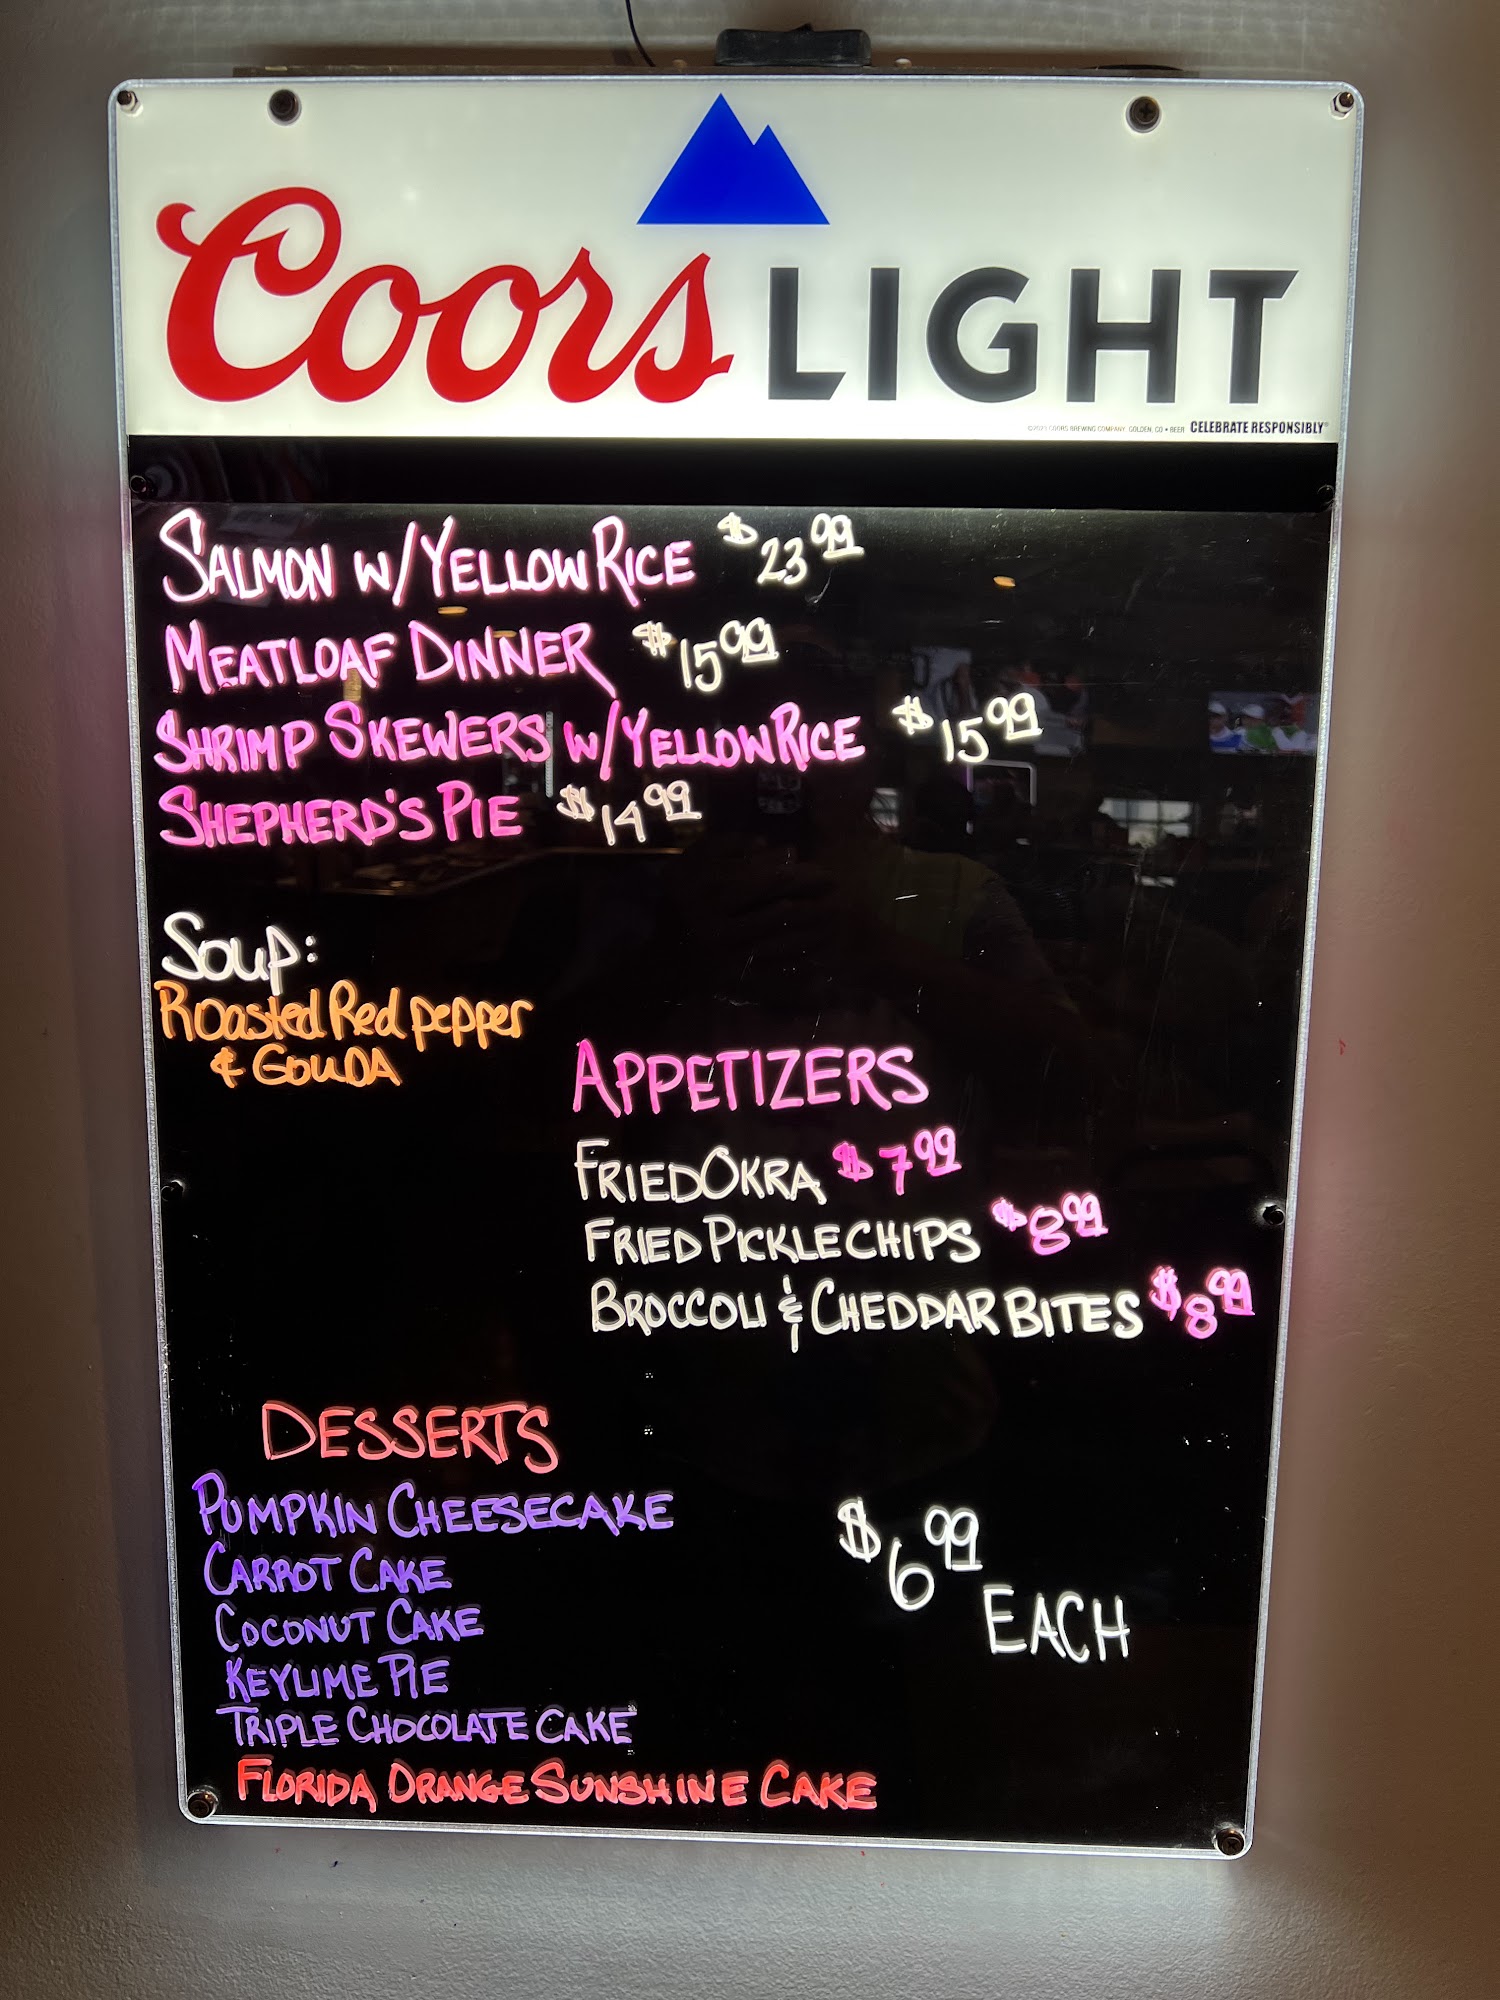 Coors LIGHT
©2021 COORS BREWING COMPANY, GOLDEN, CO • BEER CELEBRATE RESPONSIBLY®
SALMON W/YELLOW RICE $23.99
MEATLOAF DINNER $15.99
SHRIMP SKEWERS W/YELLOW RICE $15.99
SHEPHERD'S PIE $14.99
Soup:
Roasted Red pepper
& GOUDA
APPETIZERS
FRIED OKRA $7.99
FRIED PICKLE CHIPS $8.99
BROCCOLI & CHEDDAR BITES $8.99
DESSERTS
PUMPKIN CHEESECAKE
CARROT CAKE
COCONUT CAKE
KEYLIME PIE
TRIPLE CHOCOLATE CAKE
FLORIDA ORANGE SUNSHINE CAKE
$6.99
EACH